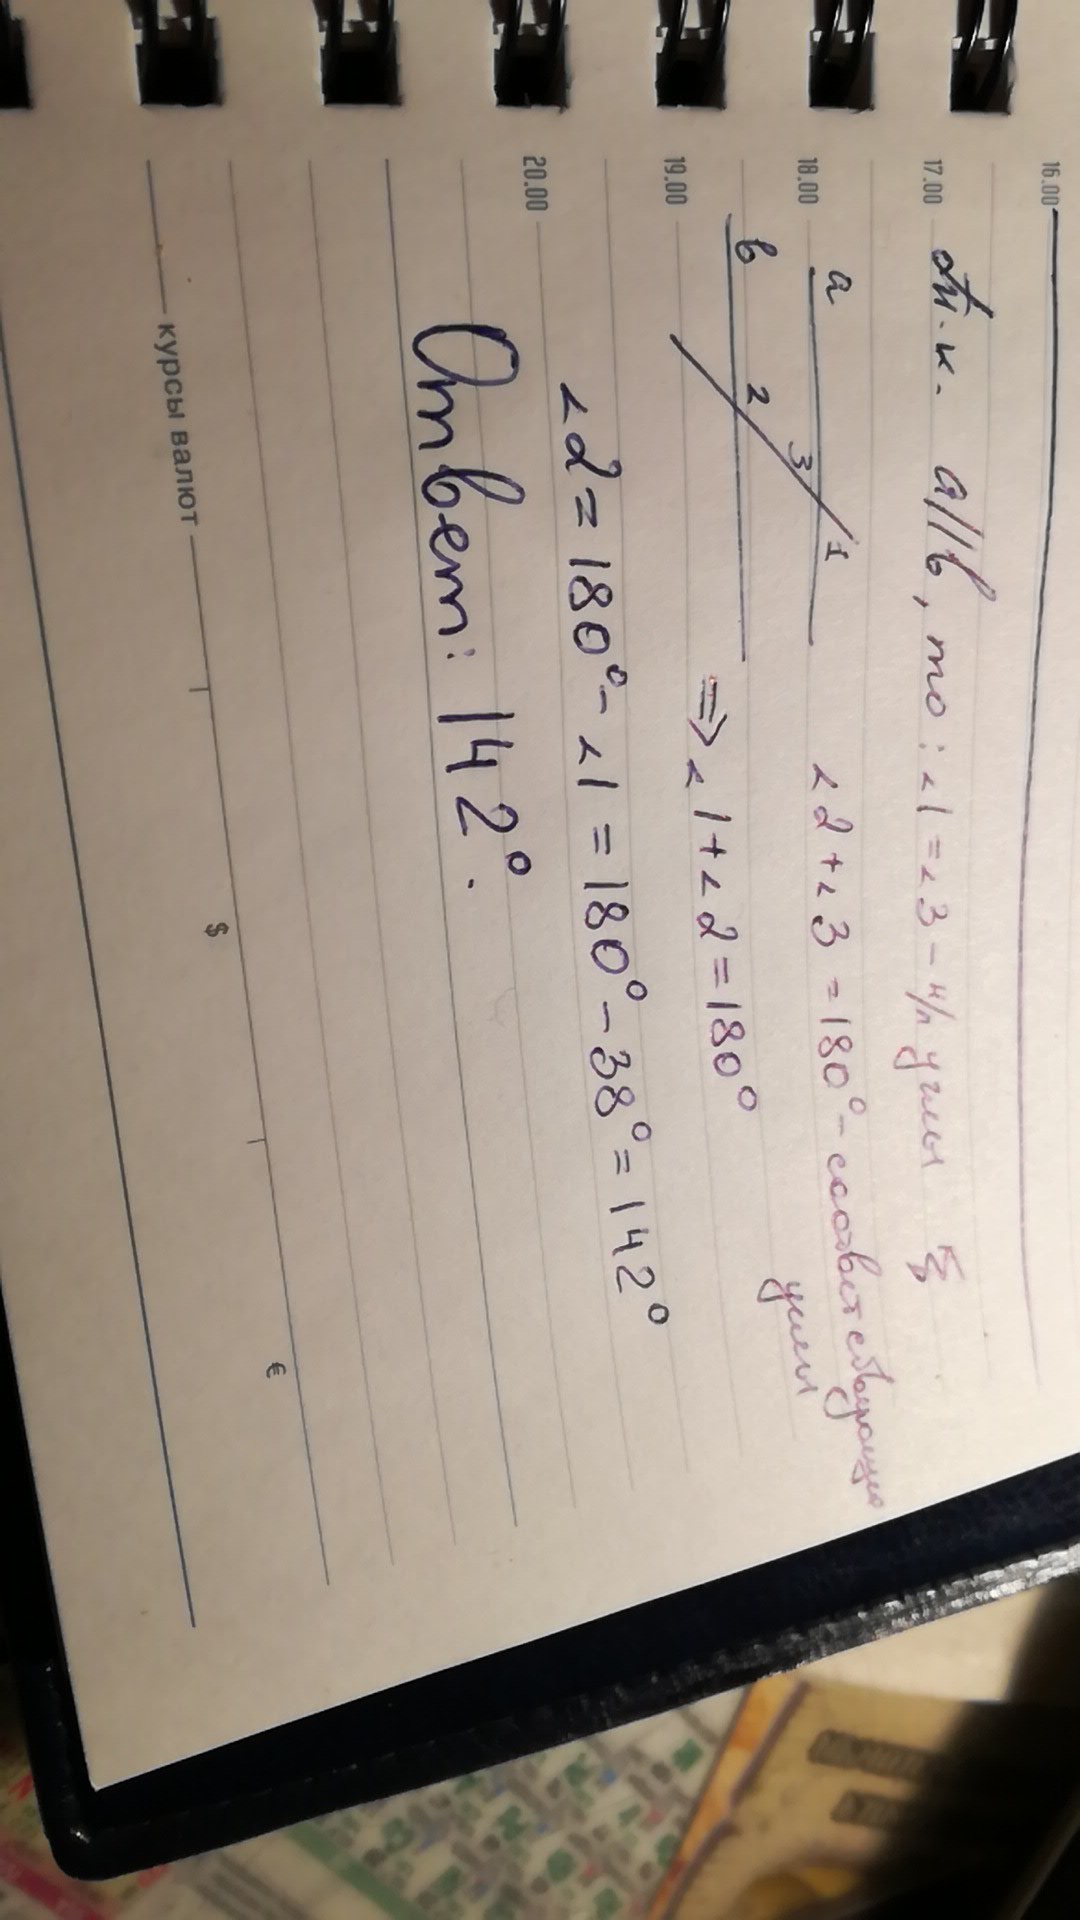 16.00
17.00
Т.к. a||b, то: <1 = <3 - н/л углы
18.00
a
1
3
<2 + <3 = 180° - соответствующие
углы
19.00
b
2
=> <1 + <2 = 180°
20.00
<2 = 180° - <1 = 180° - 38° = 142°
Ответ: 142°.
курсы валют
$
€